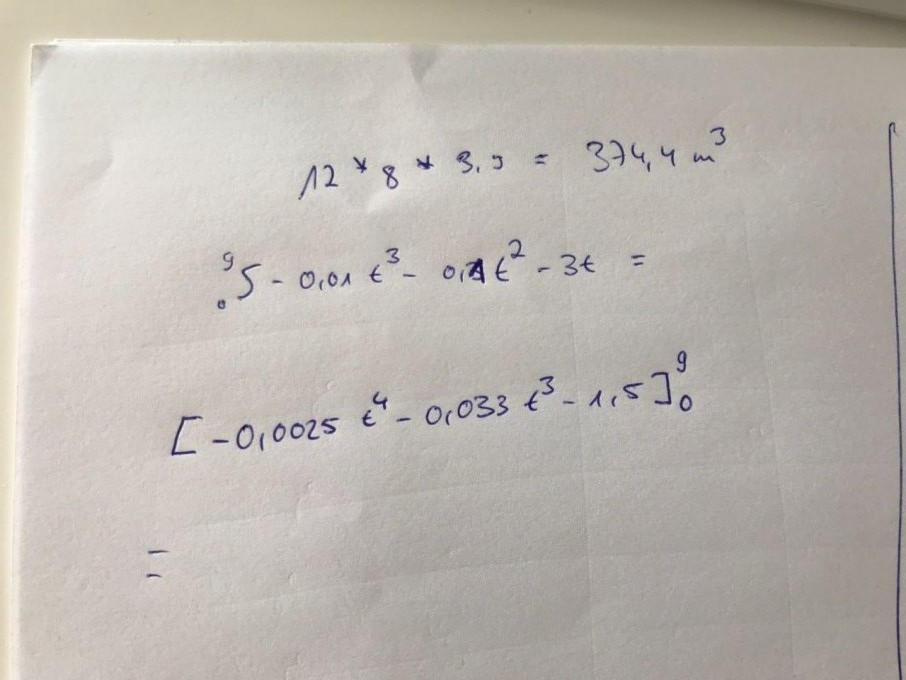 12 * 8 * 3,9 = 374,4 m³
₀⁹∫ - 0,01 t³ - 0,1 t² - 3t =
[ - 0,0025 t⁴ - 0,033 t³ - 1,5 ]₀⁹
=